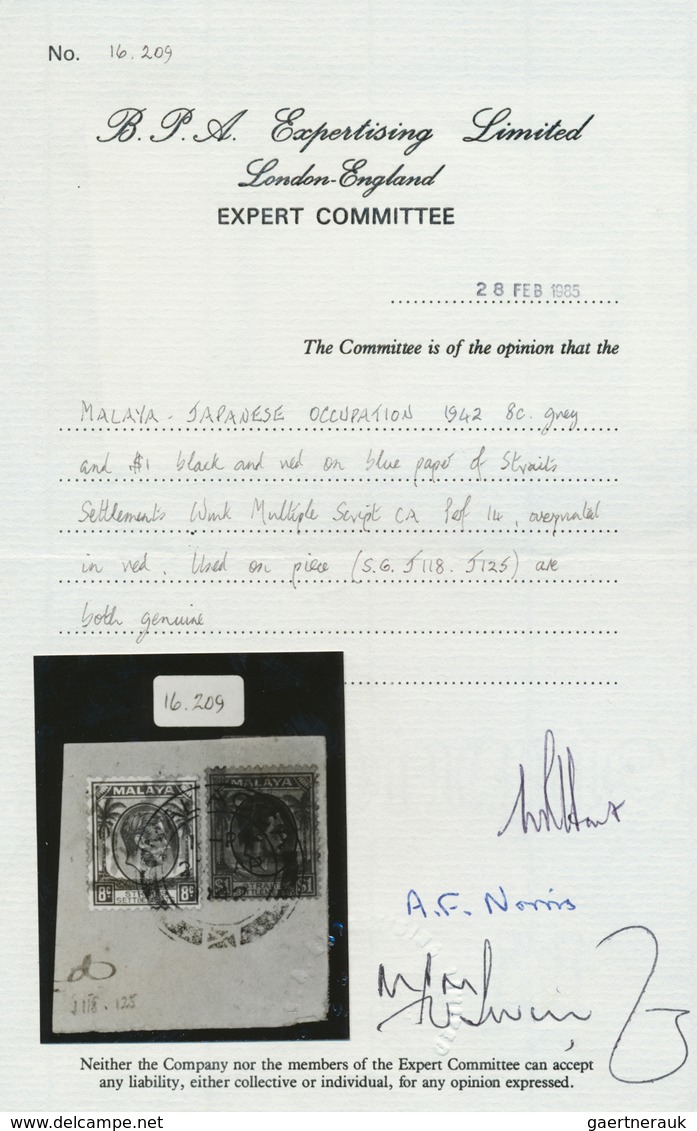 No. 16.209
B.P.A. Expertising Limited
London-England
EXPERT COMMITTEE
28 FEB 1985
The Committee is of the opinion that the
MALAYA - JAPANESE OCCUPATION 1942 8c. grey
and $1 black and red on blue paper of Straits
Settlements Wmk Multiple Script CA Perf 14, overprinted
in red. Used on piece (S.G. J118. J125) are
both genuine
16.209
MALAYA MALAYA
8c 8c $1 $1
J118. 125
A.F. Norris
Neither the Company nor the members of the Expert Committee can accept
any liability, either collective or individual, for any opinion expressed.
www.delcampe.net
gaertnerauk